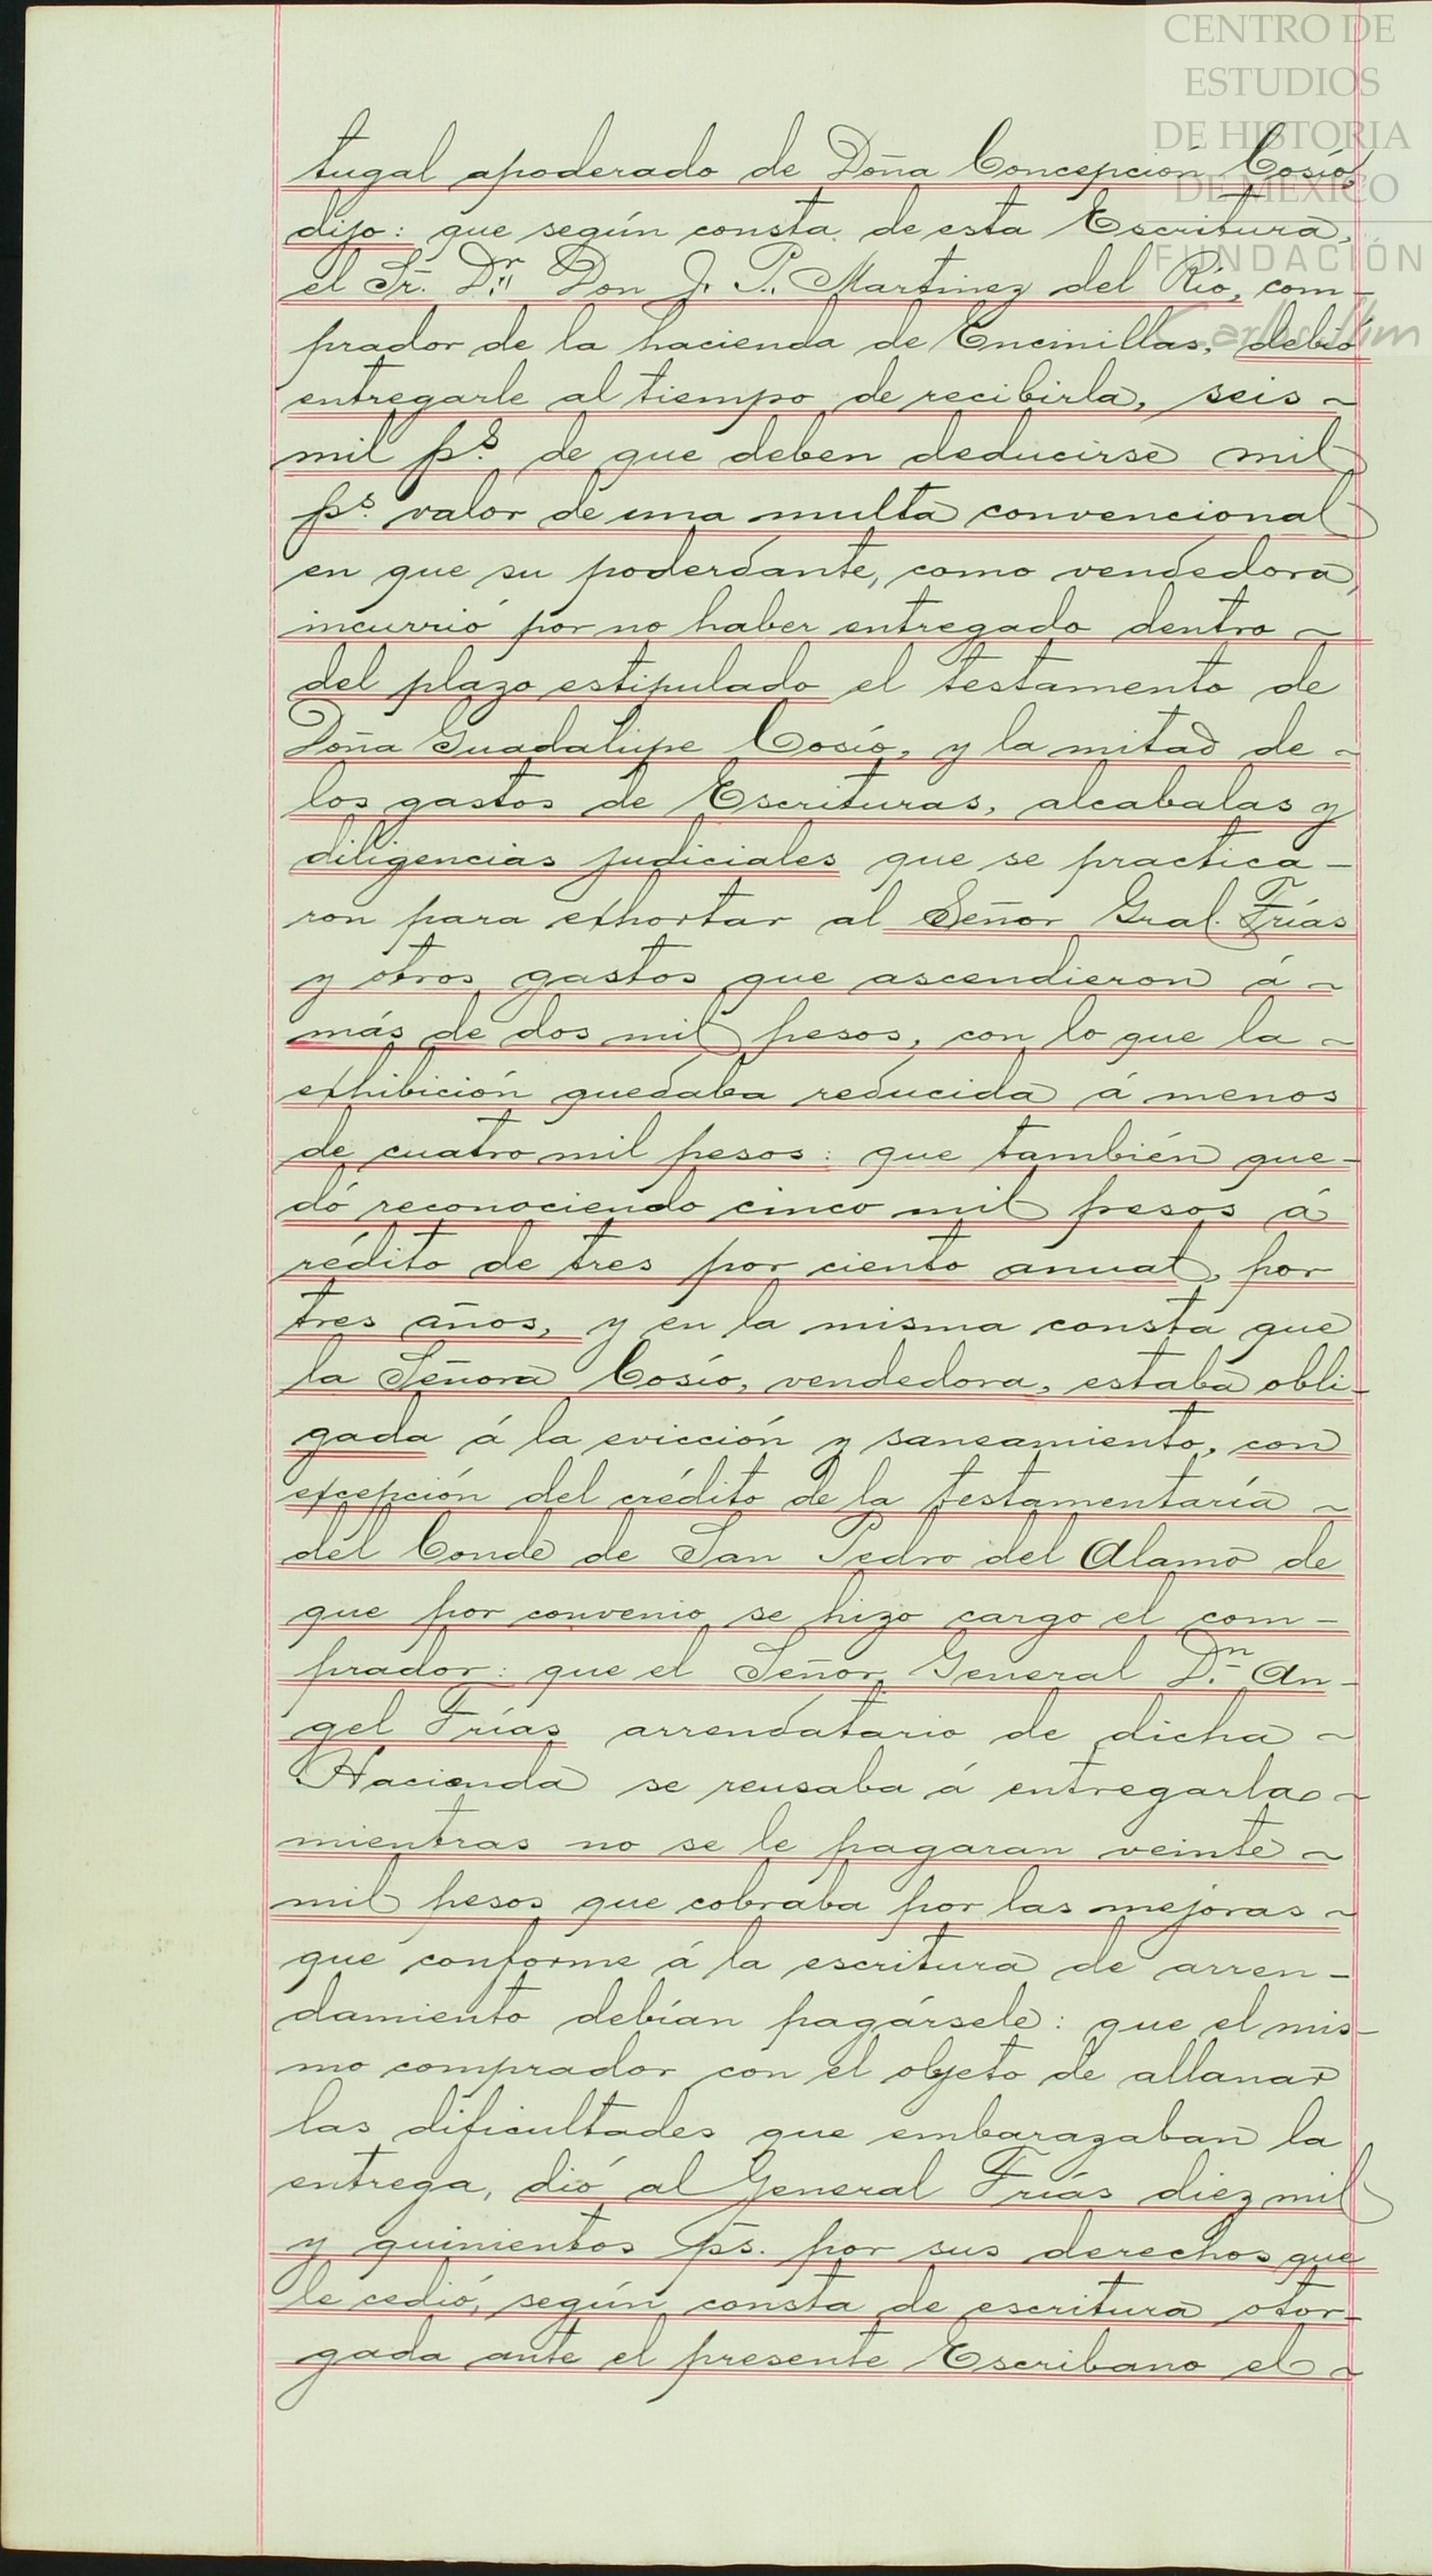 CENTRO DE
ESTUDIOS
DE HISTORIA
DE MÉXICO
FUNDACIÓN
Carlos Slim
tugal apoderado de Doña Concepción Cosío,
dijo: que según consta de esta Escritura,
el Sr. Dr. Don J. P. Martinez del Río, com-
prador de la hacienda de Encinillas, debió
entregarle al tiempo de recibirla, seis ~
mil ps. de que deben deducirse mil
ps. valor de una multa convencional
en que su poderdante, como vendedora,
incurrió por no haber entregado dentro ~
del plazo estipulado el testamento de
Doña Guadalupe Cosío, y la mitad de ~
los gastos de Escrituras, alcabalas y
diligencias judiciales que se practica-
ron para exhortar al Señor Gral. Frías
y otros gastos que ascendieron á ~
más de dos mil pesos, con lo que la ~
exhibición quedaba reducida á menos
de cuatro mil pesos: que también que-
dó reconociendo cinco mil pesos á
rédito de tres por ciento anual, por
tres años, y en la misma consta que
la Señora Cosío, vendedora, estaba obli-
gada á la evicción y saneamiento, con
excepción del crédito de la testamentaría ~
del Conde de San Pedro del Alamo de
que por convenio se hizo cargo el com-
prador: que el Señor General Dn. An-
gel Frías arrendatario de dicha ~
Hacienda se reusaba á entregarla ~
mientras no se le pagaran veinte ~
mil pesos que cobraba por las mejoras ~
que conforme á la escritura de arren-
damiento debían pagársele: que el mis-
mo comprador con el objeto de allanar
las dificultades que embarazaban la
entrega, dió al General Frías diez mil
y quinientos ps. por sus derechos que
le cedió, según consta de escritura otor-
gada ante el presente Escribano el ~